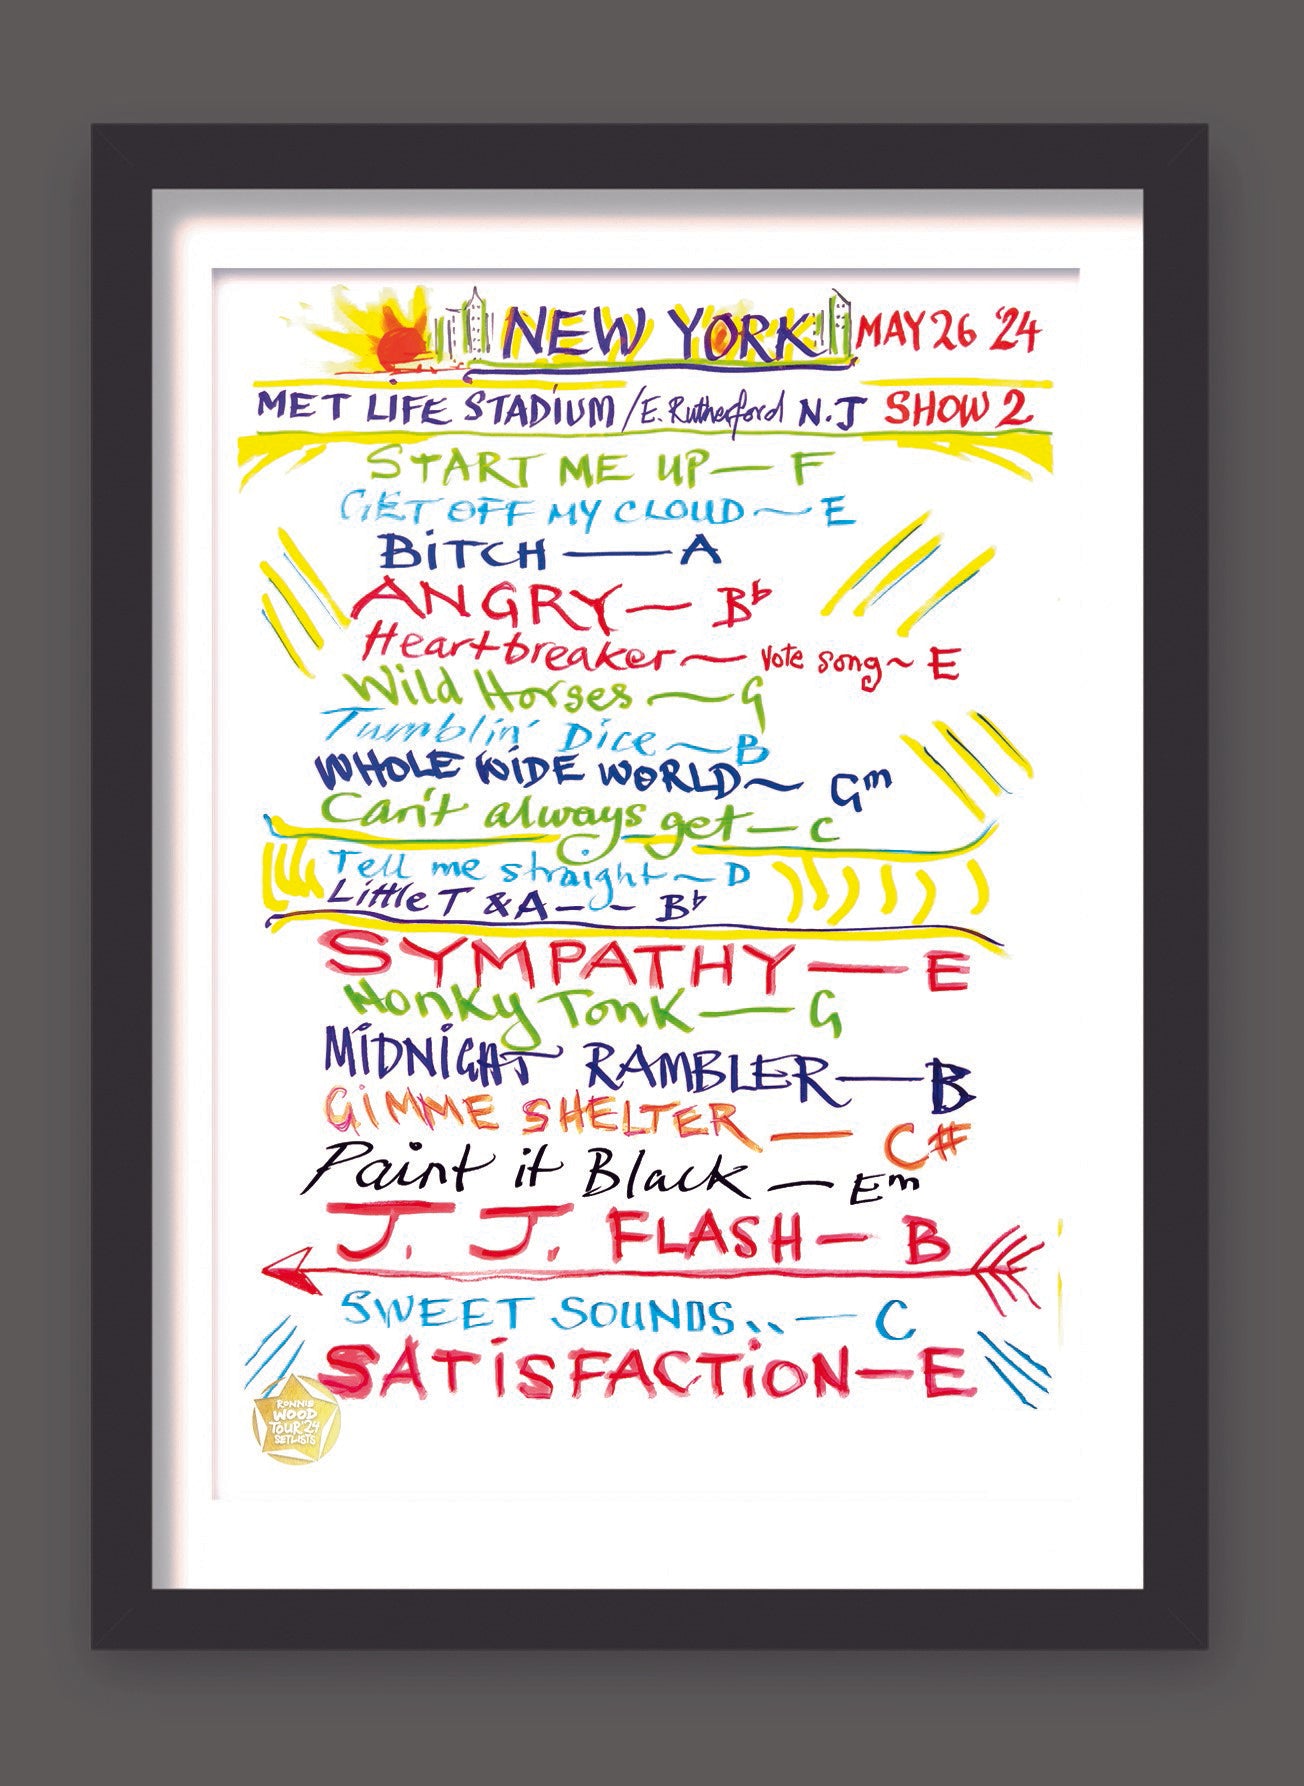 NEW YORK MAY 26 '24
MET LIFE STADIUM / E. Rutherford N.J SHOW 2
START ME UP — F
GET OFF MY CLOUD ~ E
BITCH — A
ANGRY — B♭
Heartbreaker ~ vote song ~ E
Wild Horses ~ G
Tumblin' Dice ~ B
WHOLE WIDE WORLD ~ Gm
Can't always get — C
Tell me straight ~ D
Little T & A - - B♭
SYMPATHY — E
Honky Tonk — G
MIDNIGHT RAMBLER — B
GIMME SHELTER — C#
Paint it Black — Em
J. J. FLASH — B
SWEET SOUNDS.. — C
SATISFACTION — E
RONNIE
WOOD
TOUR '24
SETLISTS